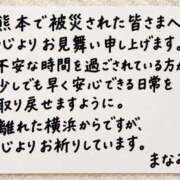 熊本で被災された皆さまへ
心よりお見舞い申し上げます。
不安な時間を過ごされている方が
少しでも早く安心できる日常を
取り戻せますように。
離れた横浜からですが、
心よりお祈りしています。
まなみ